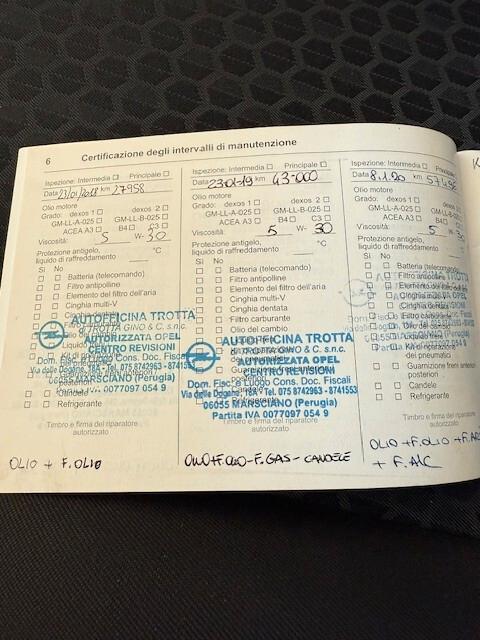 6
Certificazione degli intervalli di manutenzione
Ispezione: Intermedia Principale
Data 23/01/2018 km 27958
Olio motore
Grado: dexos 1 dexos 2
GM-LL-A-025 GM-LL-B-025
ACEA A3 B4 C3
Viscosità: 5 W- 30
Protezione antigelo,
liquido di raffreddamento: °C
Sì No
Batteria (telecomando)
Filtro antipolline
Elemento del filtro dell'aria
Cinghia multi-V
Cinghia dentata
AUTOFFICINA TROTTA
di TROTTA GINO & C. s.n.c.
AUTORIZZATA OPEL
CENTRO REVISIONI
Dom. Fisc. e Luogo Cons. Doc. Fiscali
Via delle Dogane, 18A - Tel. 075 8742963 - 8741553
06055 MARSCIANO (Perugia)
Partita IVA 0077097 054 9
Refrigerante
Timbro e firma del riparatore
autorizzato
OLIO + F.OLIO
Ispezione: Intermedia Principale
Data 23-01-19 km 43-000
Olio motore
Grado: dexos 1 dexos 2
GM-LL-A-025 GM-LL-B-025
ACEA A3 B4 C3
Viscosità: 5 W- 30
Protezione antigelo,
liquido di raffreddamento: °C
Sì No
Batteria (telecomando)
Filtro antipolline
Elemento del filtro dell'aria
Cinghia multi-V
Cinghia dentata
Filtro carburante
Olio del cambio
AUTOFFICINA TROTTA
di TROTTA GINO & C. s.n.c.
AUTORIZZATA OPEL
CENTRO REVISIONI
Dom. Fisc. e Luogo Cons. Doc. Fiscali
Via delle Dogane, 18A - Tel. 075 8742963 - 8741553
06055 MARSCIANO (Perugia)
Partita IVA 0077097 054 9
Timbro e firma del riparatore
autorizzato
OLIO+F.OLIO-F.GAS-CANDELE
Ispezione: Intermedia Principale
Data 8.1.20 km
Olio motore
Grado: dexos 1
GM-LL-A-025
ACEA A3 B4
Viscosità: 5 W- 30
Protezione antigelo,
liquido di raffreddamento:
Sì No
Batteria (telecomando)
Filtro antipolline
Cinghia dentata
Kit di riparazione
dei pneumatici
Guarnizione freni anteriori
posteriori
Candele
Refrigerante
Timbro e firma del riparatore
autorizzato
OLIO+F.OLIO+F.
+ F.A/C